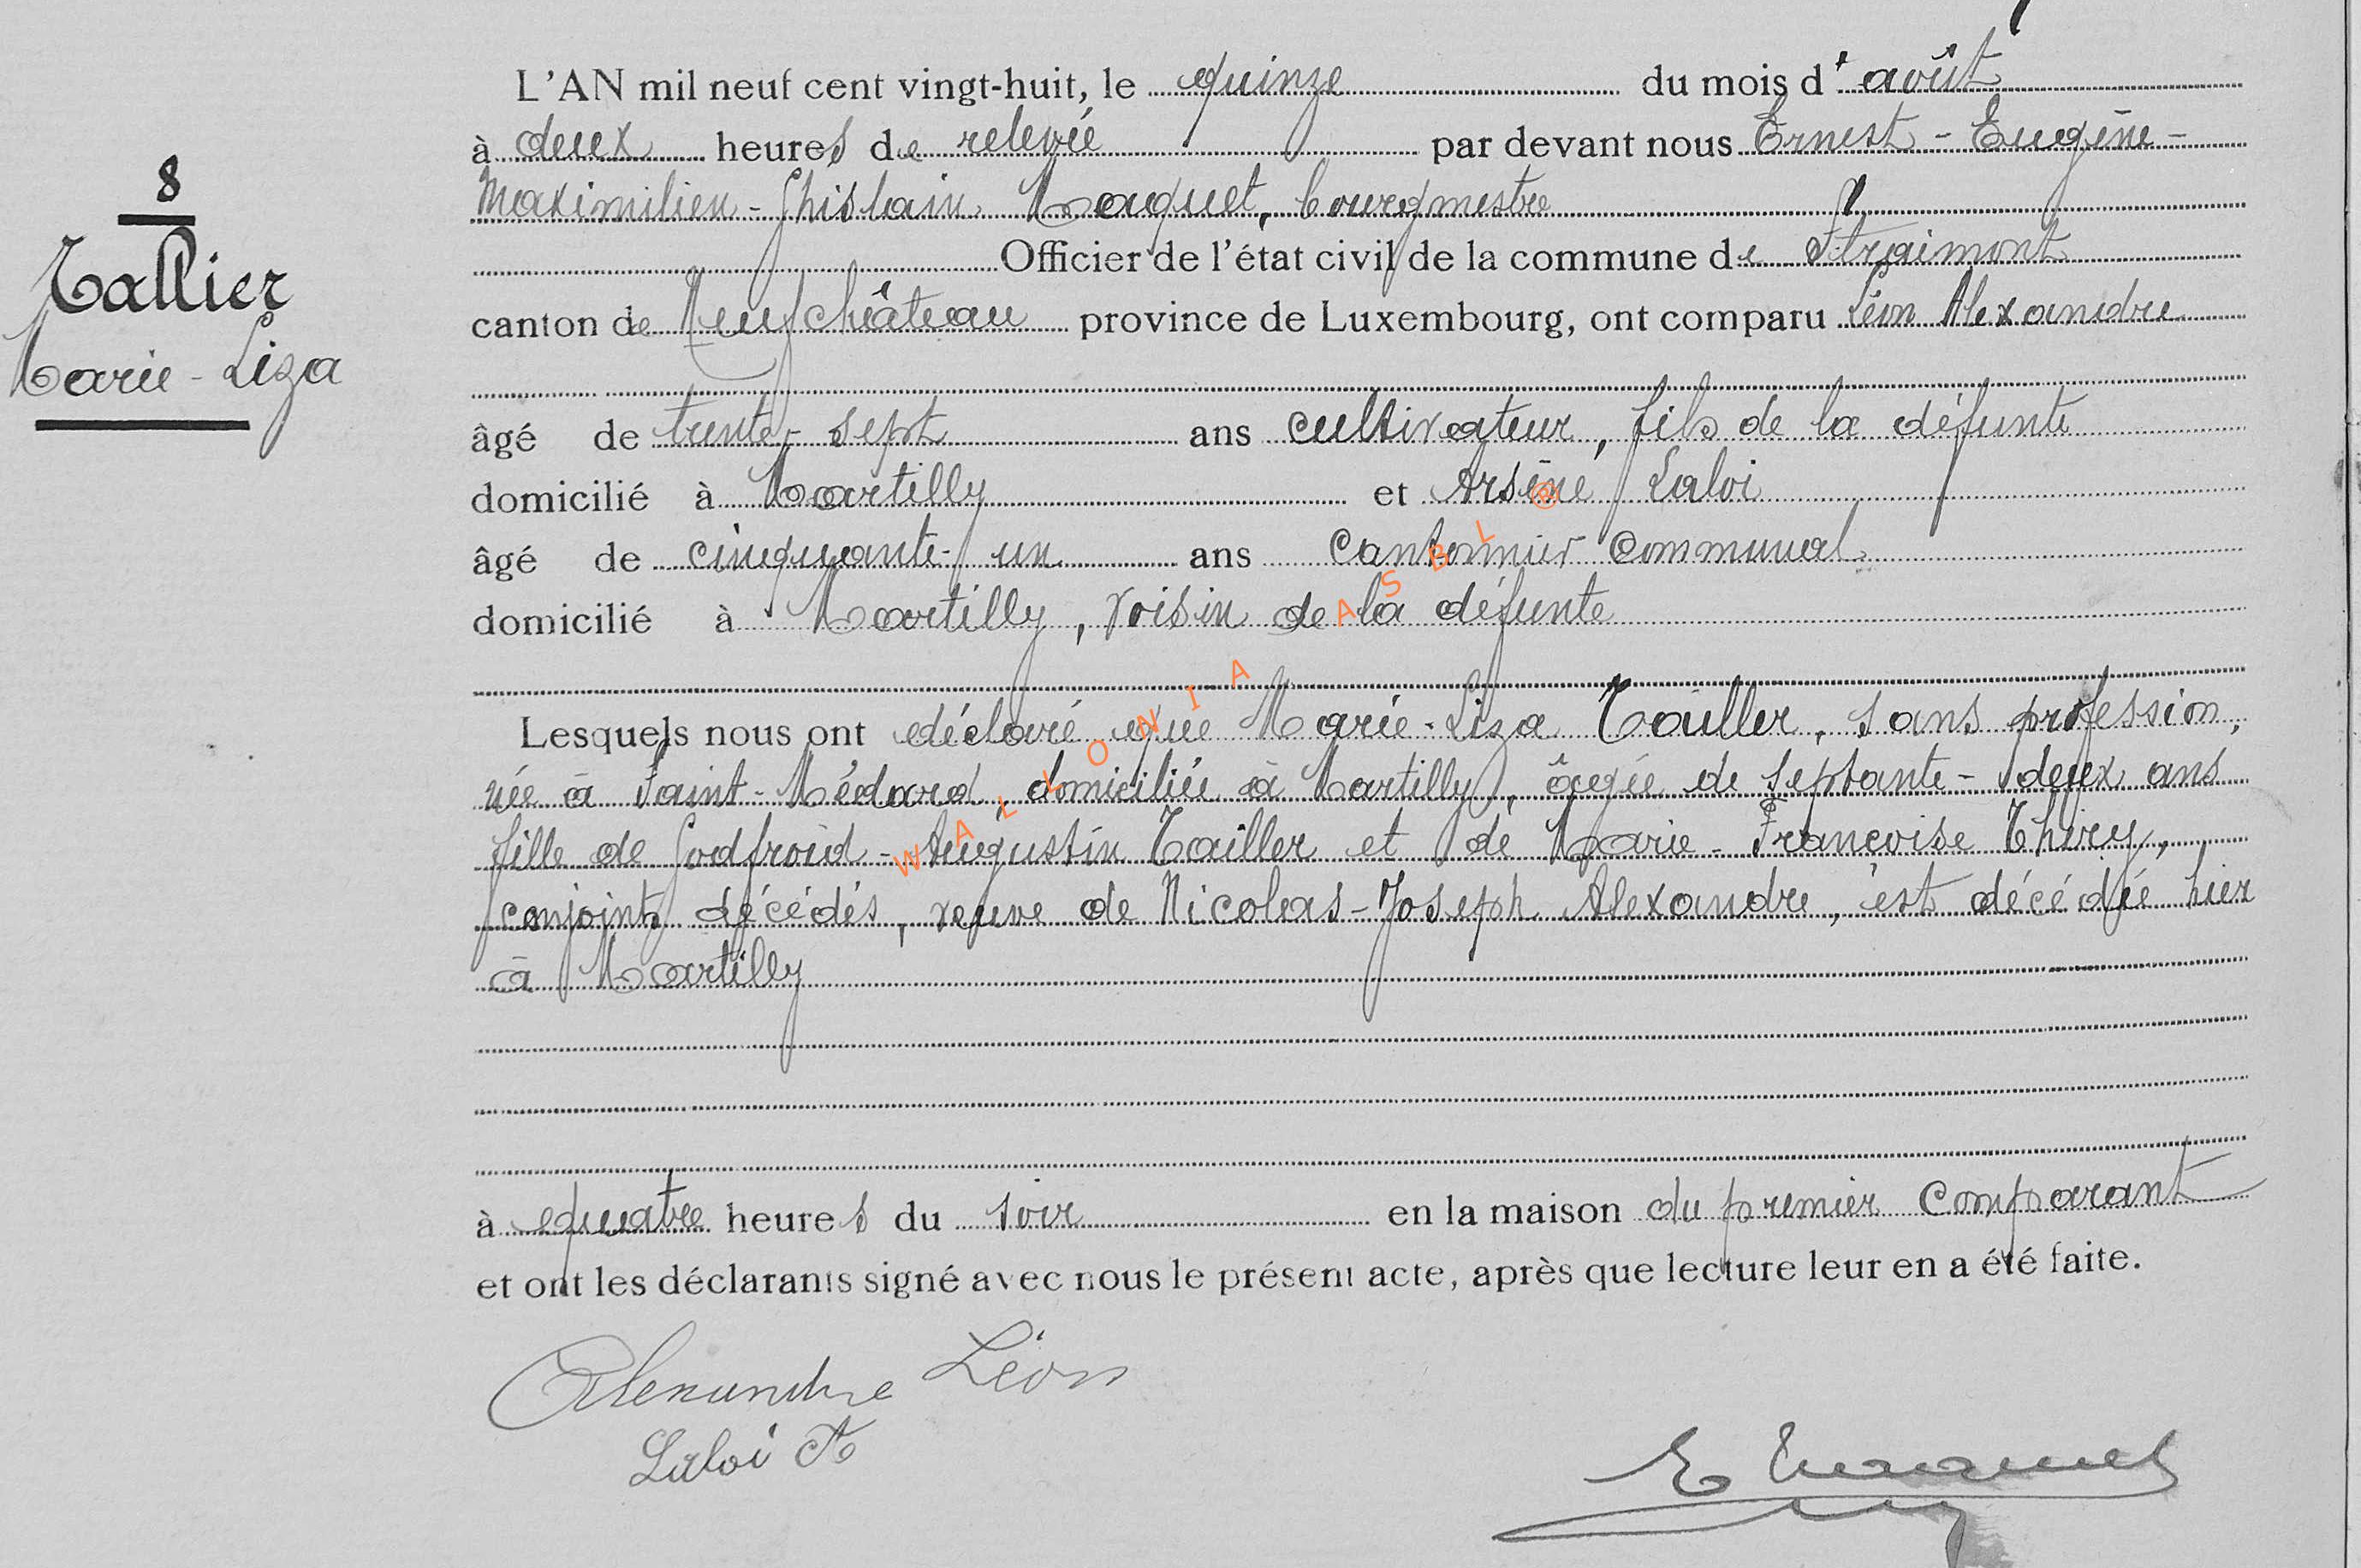 8
Tallier
Marie-Liza
L'AN mil neuf cent vingt-huit, le quinze du mois d'août
à deux heures de relevée par devant nous Ernest-Eugène-
Maximilien-Ghislain Maquet, bourgmestre
Officier de l'état civil de la commune de Straimont
canton de Neufchâteau province de Luxembourg, ont comparu Léon Alexandre
âgé de trente-sept ans cultivateur, fils de la défunte
domicilié à Martilly et Arsène Laloi
âgé de cinquante-un ans Cantonnier communal
domicilié à Martilly, voisin de la défunte
Lesquels nous ont déclaré que Marie-Liza Tailler, sans profession,
née à Saint-Médard, domiciliée à Martilly, âgée de septante-deux ans
fille de Godfroid-Augustin Tailler et de Marie-Françoise Thiry,
conjoints décédés, veuve de Nicolas-Joseph Alexandre, est décédée hier
à Martilly
à quatre heures du soir en la maison du premier Comparant
et ont les déclarants signé avec nous le présent acte, après que lecture leur en a été faite.
Alexandre Léon
Laloi A
E Maquet
WALLONIA ASBL ®